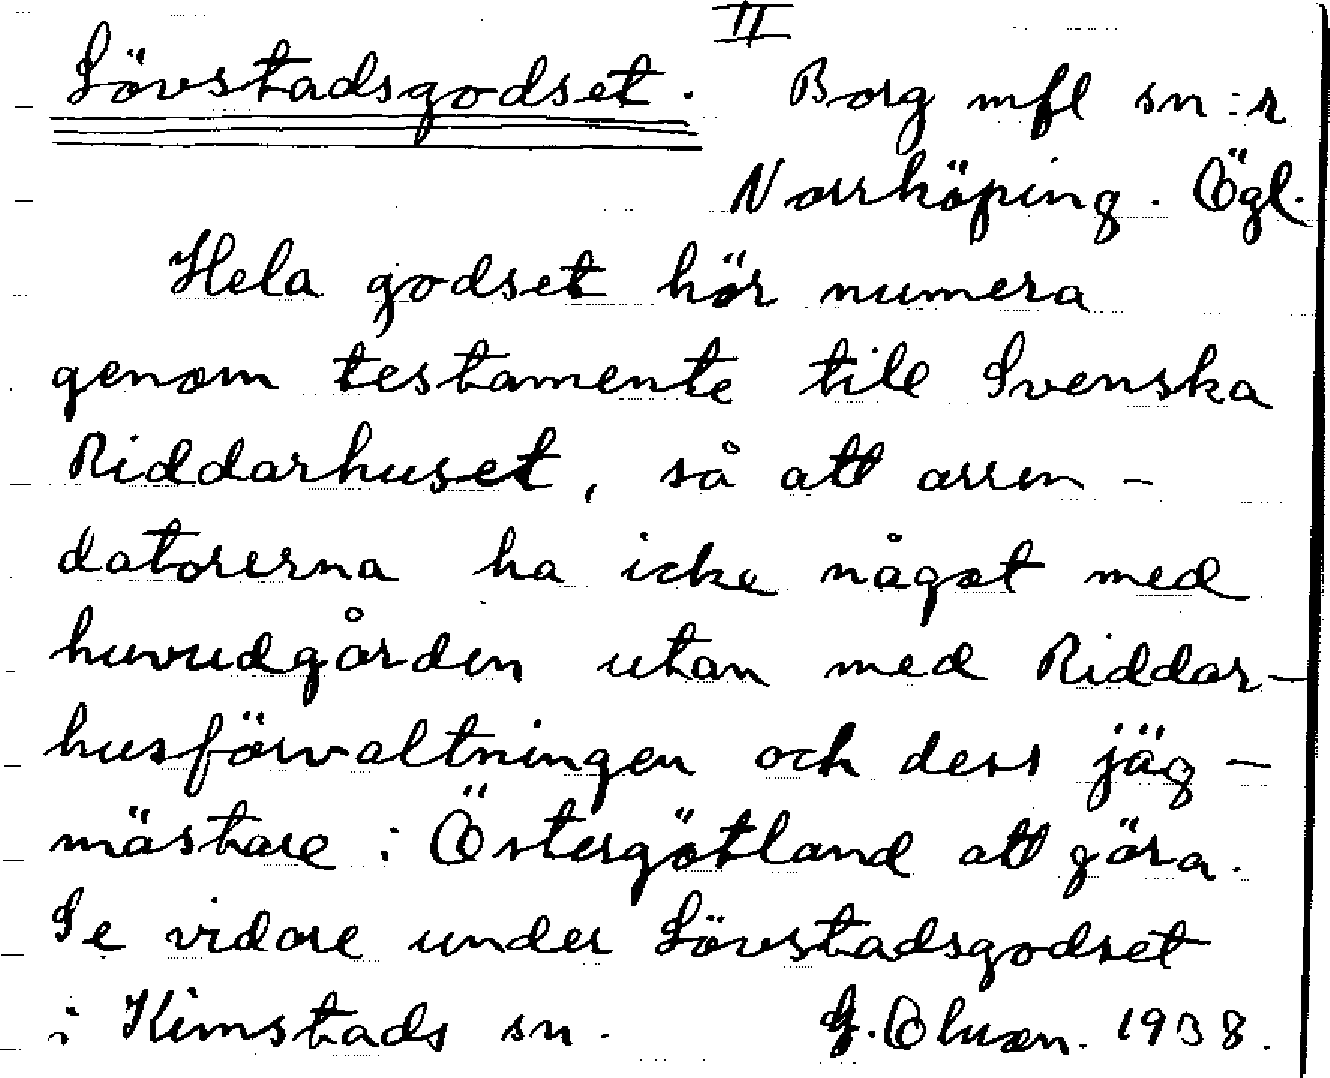 II
Lövstadsgodset. Borg mfl sn:r
Norrköping. Ögl.
Hela godset hör numera
genom testamente till Svenska
Riddarhuset, så att arren-
datorerna ha icke något med
huvudgården utan med Riddar-
husförvaltningen och dess jäg-
mästare i Östergötland att göra.
Se vidare under Lövstadsgodset
i Kimstads sn. G. Olsson. 1938.